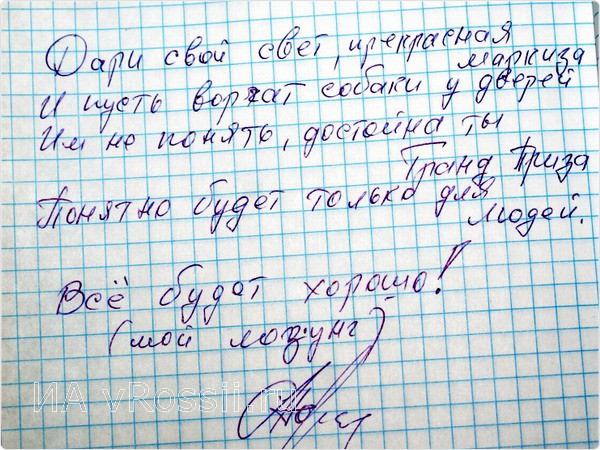 Дари свой свет, прекрасная
маркиза
И пусть ворчат собаки у дверей
Им не понять, достойна ты
Гранд Приза
Понятно будет только для
людей.
Всё будет хорошо!
(мой лозунг)
ИА vRossii.ru